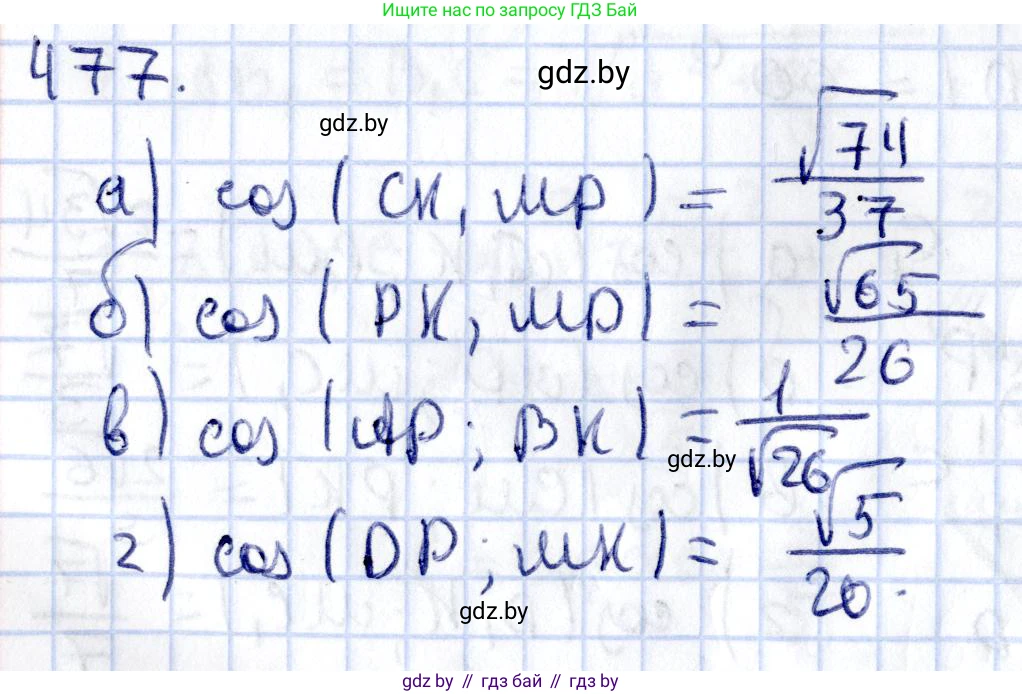 Ищите нас по запросу ГДЗ Бай
477.
gdz.by
gdz.by
а) cos (CK, MP) = √74/37
б) cos (PK, MP) = √65/26
в) cos (AP; BK) = 1/√26
gdz.by
г) cos (DP; MK) = √5/20.
gdz.by
gdz.by // гдз бай // gdz.by